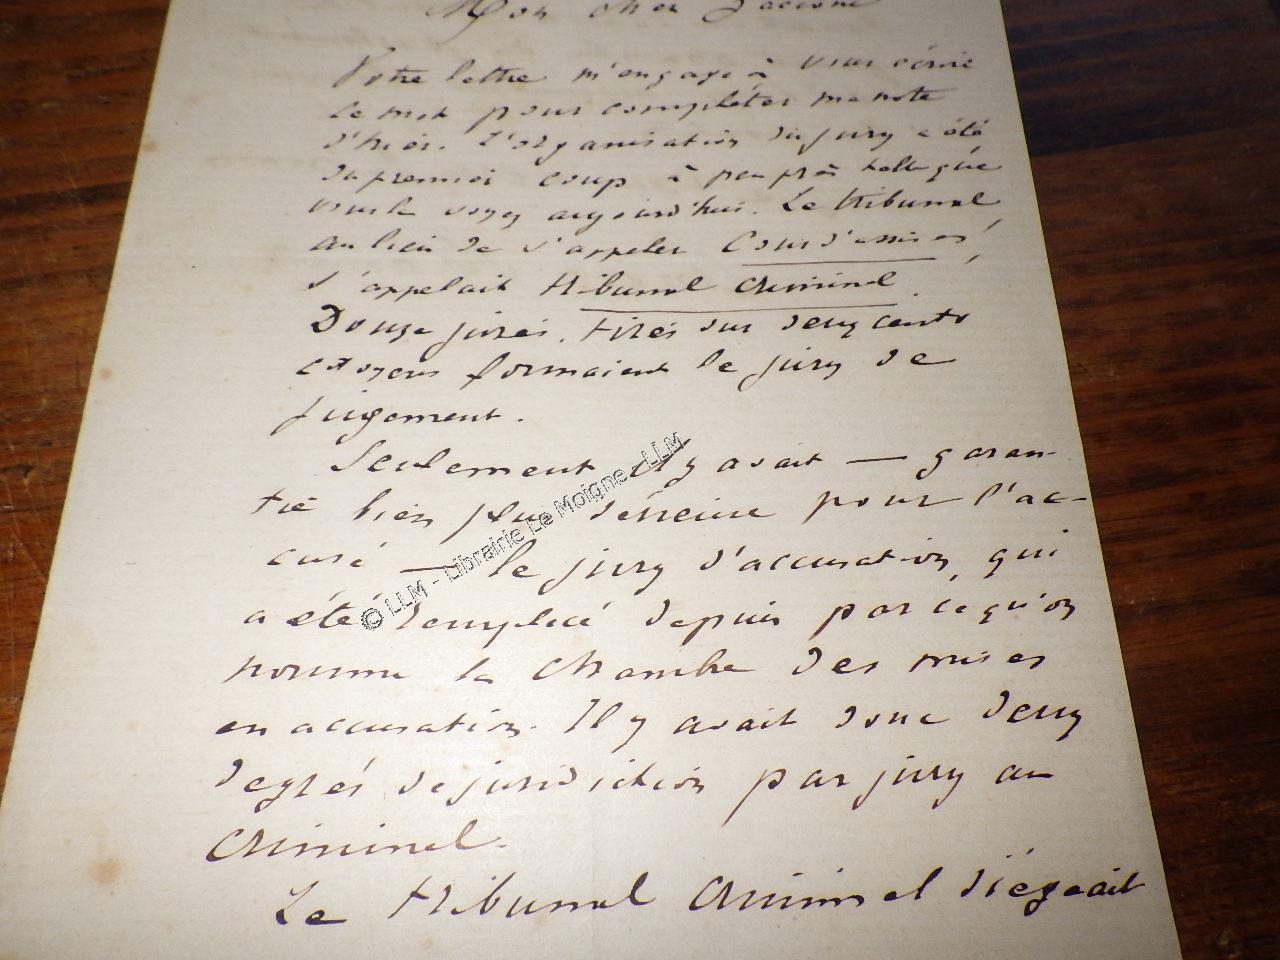 Mon cher
Votre lettre m'engage à vous écrire
ce mot pour compléter ma note
d'hier. L'organisation du jury a été
du premier coup à peu près telle que
vous le voyez aujourd'hui. Le tribunal,
au lieu de s'appeler Cour d'assises,
s'appelait tribunal criminel.
Douze jurés, tirés sur deux cents
citoyens formaient le jury de
jugement.
Seulement il y avait — garan-
tie bien plus sérieuse pour l'ac-
cusé — le jury d'accusation, qui
a été remplacé depuis par ce qu'on
nomme la Chambre des mises
en accusation. Il y avait donc deux
degrés de juridiction par jury au
criminel.
Le tribunal criminel siégeait
© LLM - Librairie Le Moigne - LLM